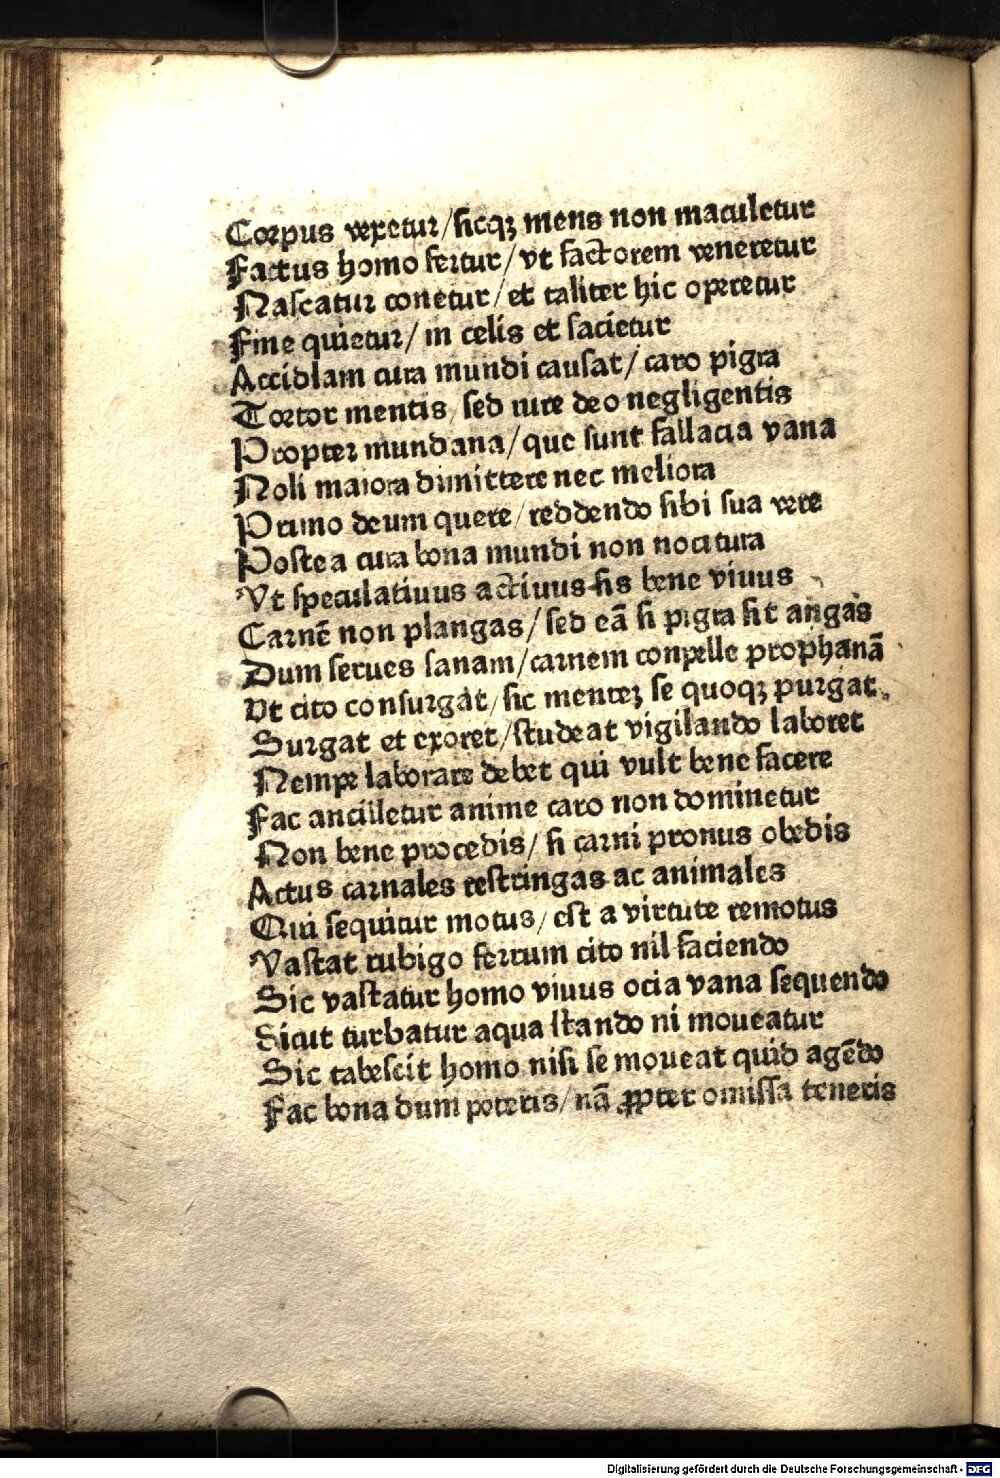 Corpus vexetur/sicqꝫ mens non maculetur
Factus homo fertur/vt factorem veneretur
Nascatur conetur/et taliter hic operetur
Fine quietur/in celis et sacietur
Accidiam cura mundi causat/caro pigra
Tortor mentis/sed iure deo negligentis
Propter mundana/que sunt fallacia vana
Noli maiora dimittere nec meliora
Primo deum quere/reddendo sibi sua vere
Postea cura bona mundi non nocitura
Vt speculatiuus actiuus sis bene viuus
Carnē non plangas/sed eā si pigra sit angas
Dum serues sanam/carnem conpelle prophanā
Vt cito consurgat/sic menteꝫ se quoqꝫ purgat
Surgat et exoret/studeat vigilando laboret
Nempe laborare debet qui vult bene facere
Fac ancilletur anime caro non dominetur
Non bene procedis/si carni pronus obedis
Actus carnales restringas ac animales
Qui sequitur motus/est a virtute remotus
Vastat rubigo ferrum cito nil faciendo
Sic vastatur homo viuus ocia vana sequendo
Sicut turbatur aqua stando ni moueatur
Sic tabescit homo nisi se moueat quid agēdo
Fac bona dum poteris/nā ꝓpter omissa teneris
Digitalisierung gefördert durch die Deutsche Forschungsgemeinschaft - DFG